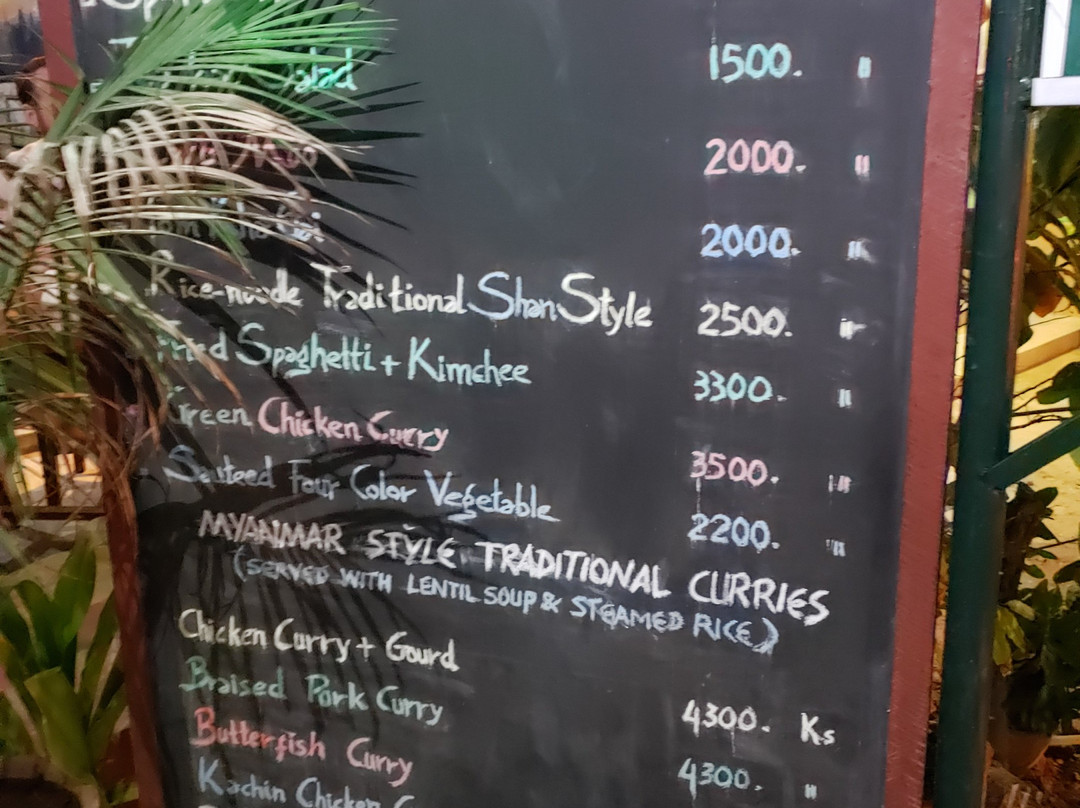 Salad 1500. "
2000. "
2000. "
Rice-noodle Traditional Shan Style 2500. "
Fried Spaghetti + Kimchee 3300. "
Green Chicken Curry 3500. "
Sauteed Four Color Vegetable 2200. "
MYANMAR STYLE TRADITIONAL CURRIES
(SERVED WITH LENTIL SOUP & STEAMED RICE)
Chicken Curry + Gourd
Braised Pork Curry 4300. Ks
Butterfish Curry 4300. "
Kachin Chicken